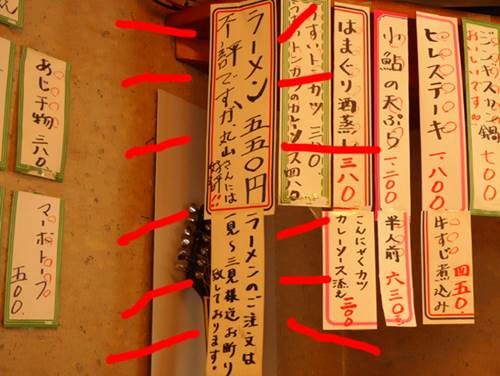 ジンギスカン鍋
おいしいです
七〇〇
ヒレステーキ
一、八〇〇
牛すじ煮込み
四五〇
小鮎の天ぷら
一、二〇〇
半人前
六三〇
はまぐり酒蒸し
三八〇
こんにゃくカツ
カレーソース添え
うすいトンカツ 三八〇
うすいトンカツのカレーソース 四八〇
ラーメン 五五〇円
不評ですが、丸山さんには好評!!
ラーメンのご注文は
一見〜三見様迄お断り
致しております。
あじ干物 三八〇
マーボトーフ
五〇〇